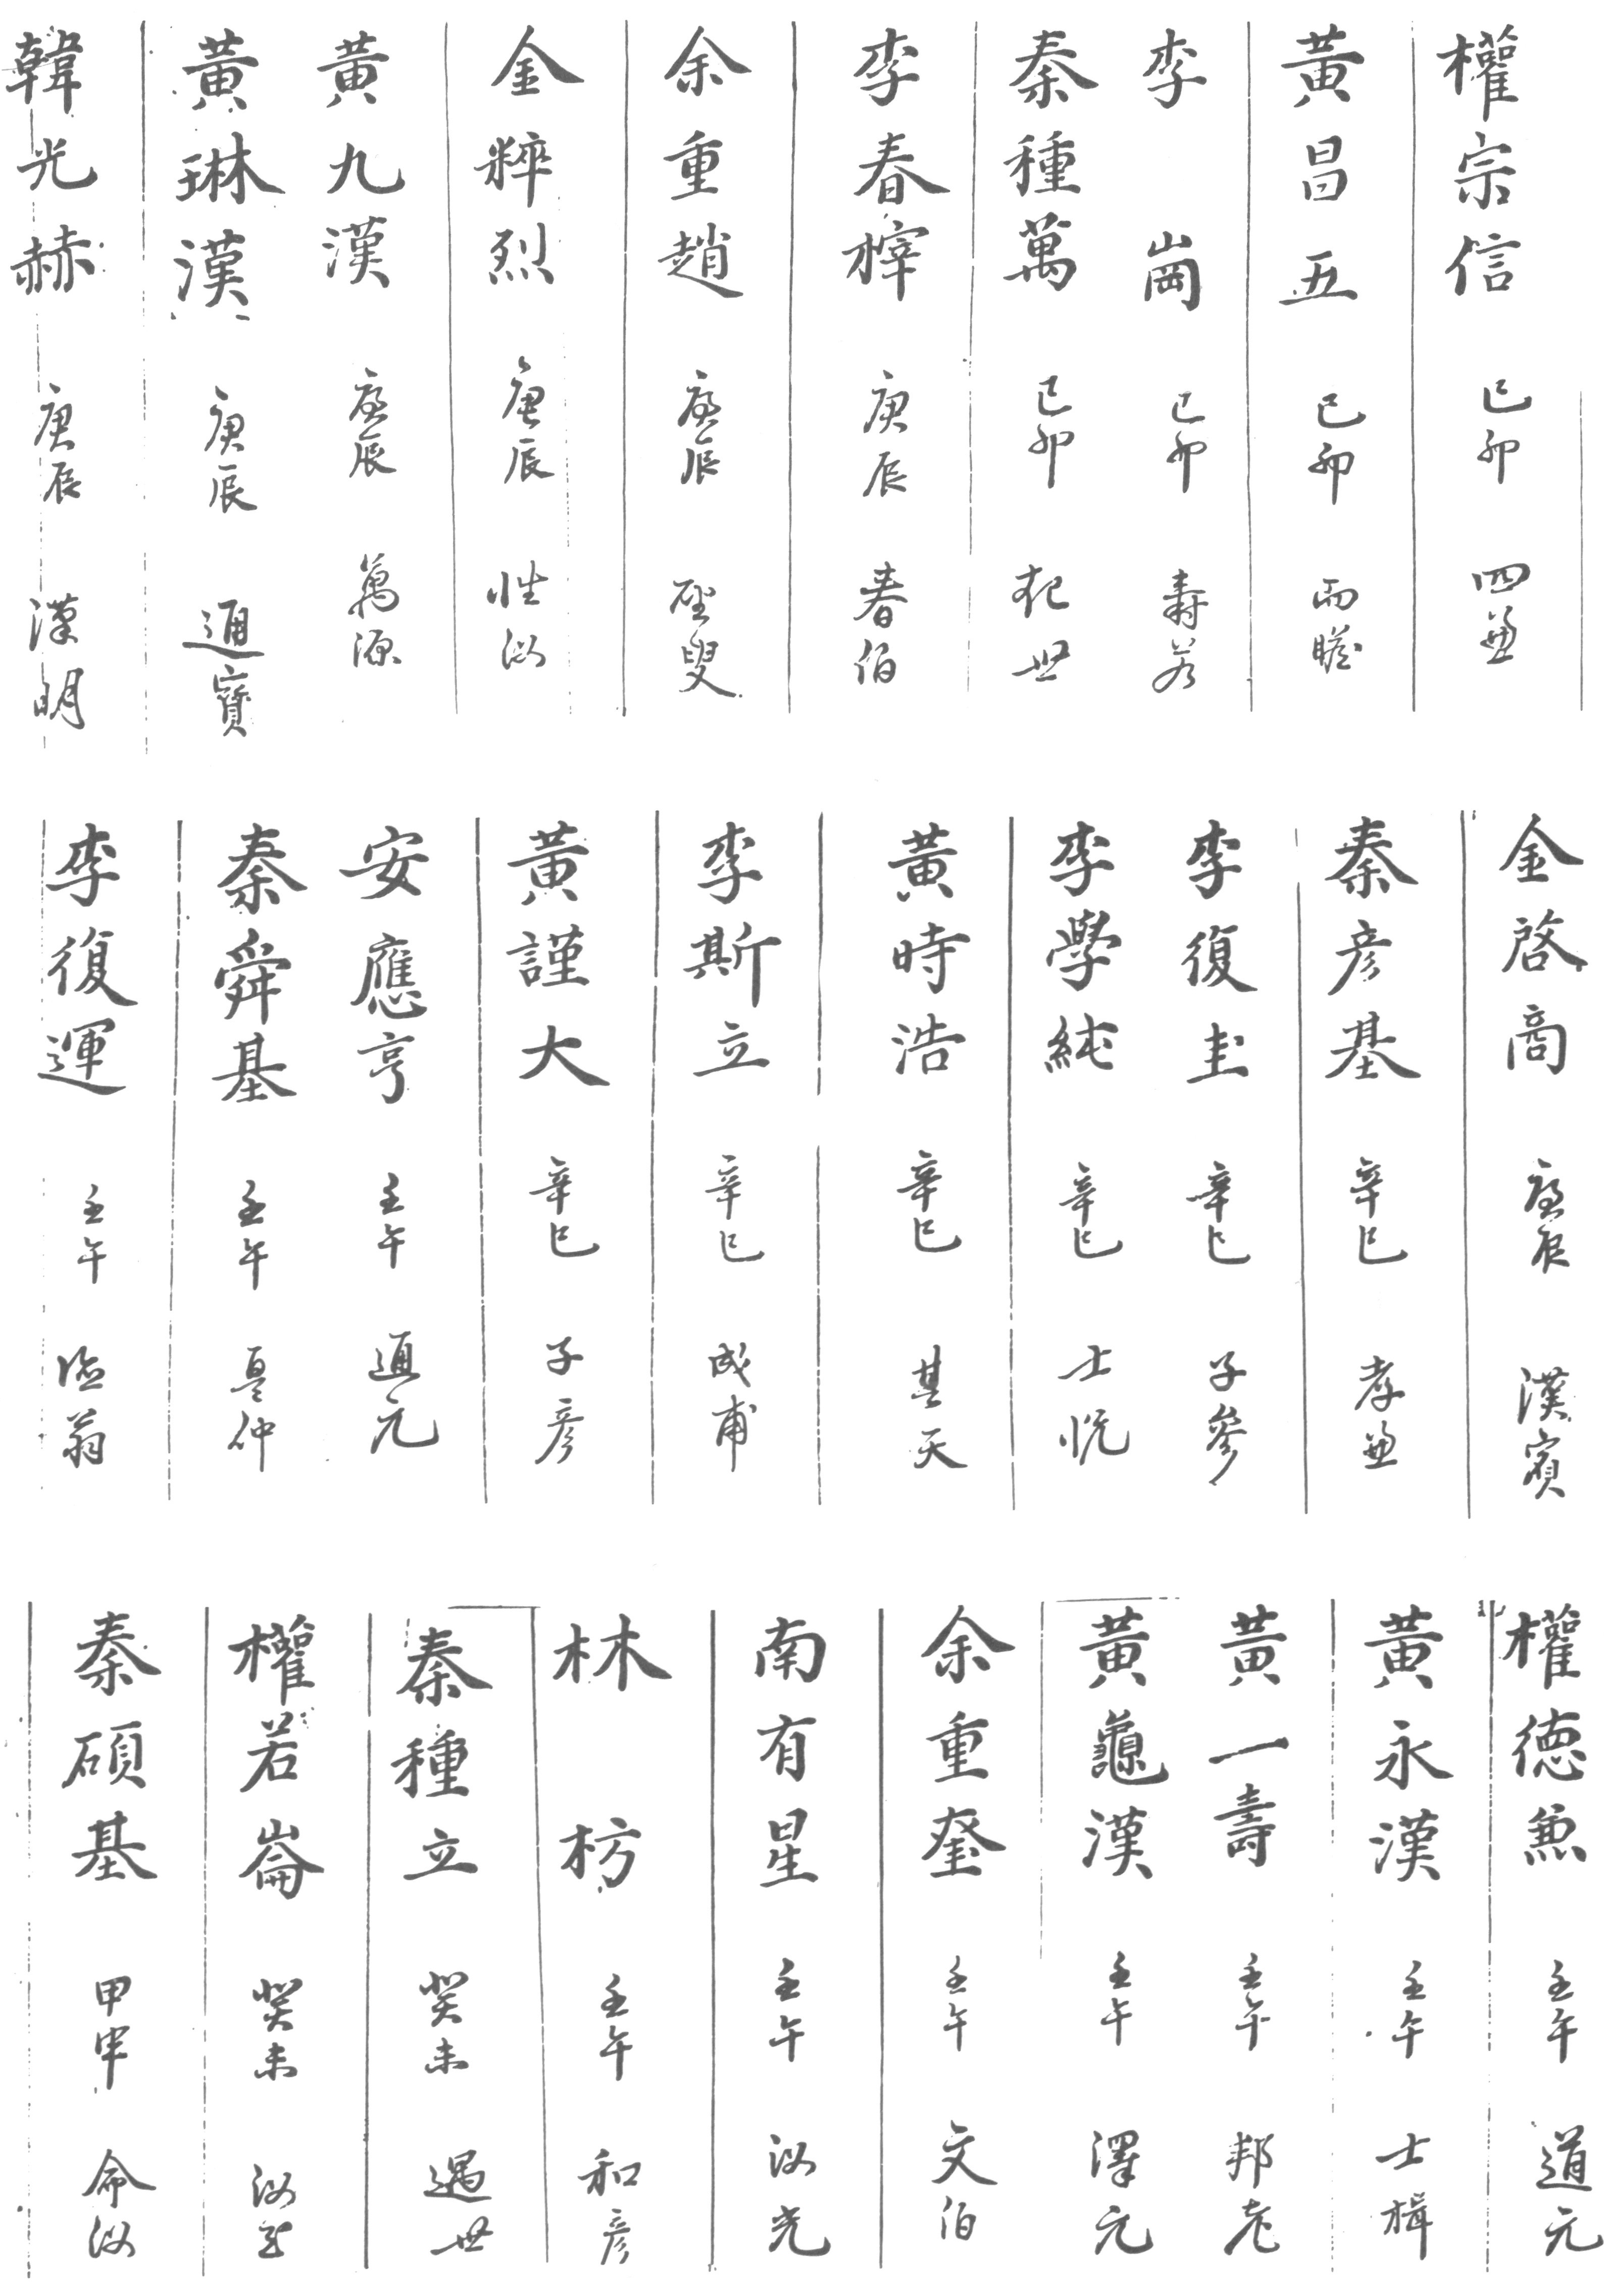 權宗信 己卯 四兼
黃昌五 己卯 而瞻
李崗 己卯 壽若
秦種萬 己卯 犯世
李春榟 庚辰 春伯
余重趙 庚辰 聖叟
金粹烈 庚辰 性汝
黃九漢 庚辰 萬源
黃琳漢 庚辰 通寶
韓光赫 庚辰 漢明
金啓商 庚辰 漢賓
秦彦基 辛巳 孝兼
李復圭 辛巳 子參
李學純 辛巳 士悅
黃時浩 辛巳 其天
李斯立 辛巳 成甫
黃謹大 辛巳 子彦
安應亨 壬午 通元
秦舜基 壬午 仲
李復運 壬午 翁
權德兼 壬午 道元
黃永漢 壬午 士楫
黃一壽 壬午 邦老
黃龜漢 壬午 澤元
余重奎 壬午 文伯
南有星 壬午 汝光
林枋 壬午 和彦
秦種立 癸未 遇世
權若崙 癸未 汝
秦碩基 甲申 命汝